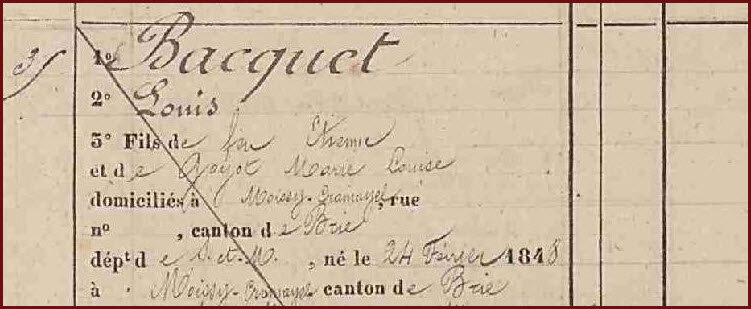 3
1º Bacquet
2º Louis
3º Fils de feu Etienne
et de Goyot Marie Louise
domiciliés à Moissy-Cramayel, rue
nº , canton de Brie
dépt d e S.-et-M. , né le 24 Février 1848
à Moissy-Cramayel canton de Brie